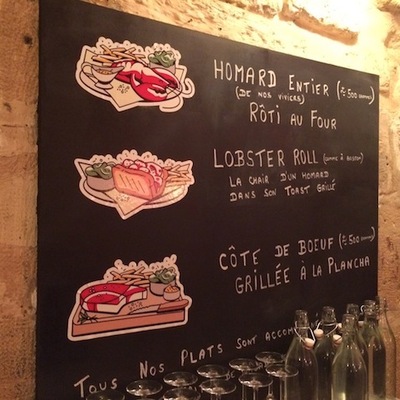 HOMARD ENTIER (≈ 500 GRAMMES)
(DE NOS VIVIERS)
RÔTI AU FOUR
LOBSTER ROLL (COMME À BOSTON)
LA CHAIR D'UN HOMARD
DANS SON TOAST GRILLÉ
CÔTE DE BOEUF (≈ 500 GRAMMES)
GRILLÉE À LA PLANCHA
TOUS NOS PLATS SONT